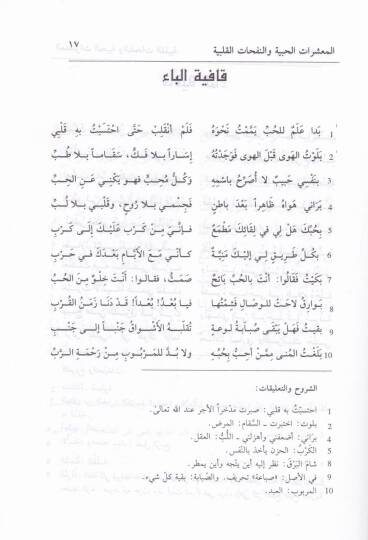 المعشرات الحبية والنفحات القلبية ١٧
قافية الباء
1 بَدا عَلَمٌ للحُبِّ يَمَّمْتُ نَحْوَهُ فَلَمْ أنْقَلِبْ حَتَّى احْتَسَبْتُ بِهِ قَلْبِي
2 بَلَوْتُ الهَوى قَبْلَ الهوى فَوَجَدْتُهُ إسَاراً بلا فَكٍّ، سَقَاماً بِلا طُبِّ
3 بِنَفْسِي حَبِيبٌ لا أُصَرِّحُ باسْمِهِ وَكُلُّ مُحِبٍّ فهو يَكْنِي عَنِ الحِبِّ
4 بَرَانِي هَواهُ ظَاهِراً بَعْدَ باطِنٍ فَجِسْمِي بِلا رُوحٍ، وَقَلْبِي بِلا لُبِّ
5 بِحُبِّكَ هَلْ لِي في لِقَائِكَ مَطْمَعٌ فَإنِّيَ مِنْ كَرْبٍ عَلَيْكَ إلَى كَرْبِ
6 بِكُلِّ طَرِيقٍ لِي إلَيْكَ مَنِيَّةٌ كَأنِّي مَعَ الأيَّامِ بَعْدَكَ في حَرْبِ
7 بَكَيْتُ فَقَالُوا: أنْتَ بالحُبِّ بَائِحٌ صَمَتُّ، فقالوا: أنْتَ خِلْوٌ مِنَ الحُبِّ
8 بَوارِقُ لاحَتْ للوِصَالِ فَشِمْتُها فيا بُعْدَا! بُعْداً! قَدْ دَنَا زَمَنُ القُرْبِ
9 بقيتُ فَهَلْ يَبْقَى صُبَابَةُ لوعةٍ تُقَلِّبهُ الأشْوَاقُ جَنْباً إلى جَنْبِ
10 بَلَغْتُ المُنى مِمَّنْ أُحِبُّ بِحُبِّهِ ولا بُدَّ للمَرْبُوبِ مِنْ رَحْمَةِ الرَّبِّ
الشروح والتعليقات:
1 احتسبْتُ به قلبي: صبرت مدّخراً الأجر عند الله تعالىٰ.
2 بلوت: اختبرت ـ السَّقام: المرض.
4 براني: أضعفني وأهزلني ـ اللُّبّ: العقل.
5 الكَرْبُ: الحزنُ يأخذ بالنَّفس.
8 شامَ البَرْقَ: نظر إليه أين يتّجه وأين يمطر.
9 في الأصل: «صباعة» تحريف. والصُّبابة: بقية كلّ شيء.
10 المربوب: العبد.